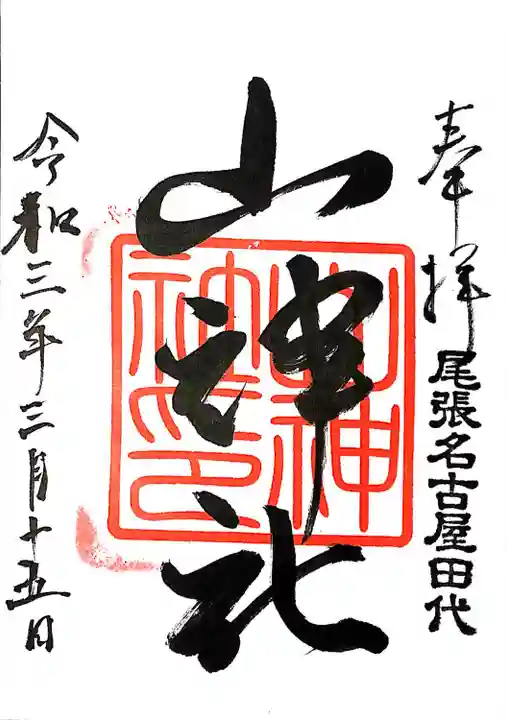 奉拝
尾張名古屋田代
山神社
山神
社印
令和三年三月十五日